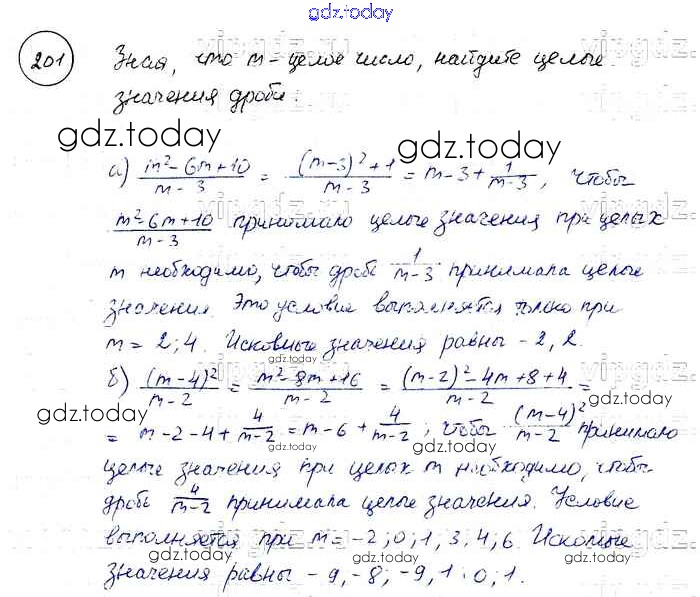 gdz.today
201
Зная, что m – целое число, найдите целые
значения дроби.
gdz.today
gdz.today
а) (m²-6m+10)/(m-3) = ((m-3)²+1)/(m-3) = m-3+1/(m-3), чтобы
(m²-6m+10)/(m-3) принимало целые значения при целых
m необходимо, чтобы дробь 1/(m-3) принимала целые
значения. Это условие выполняется только при
m = 2; 4. Искомые значения равны -2, 2.
gdz.today
gdz.today
б) (m-4)²/(m-2) = (m²-8m+16)/(m-2) = ((m-2)²-4m+8+4)/(m-2) =
gdz.today
gdz.today
gdz.today
= m-2-4+4/(m-2) = m-6+4/(m-2), чтобы (m-4)²/(m-2) принимало
целые значения при целых m необходимо, чтобы
дробь 4/(m-2) принимала целые значения. Условие
выполняется при m = -2; 0; 1, 3, 4; 6. Искомые
gdz.today
gdz.today
значения равны -9, -8; -9, 1; 0; 1.